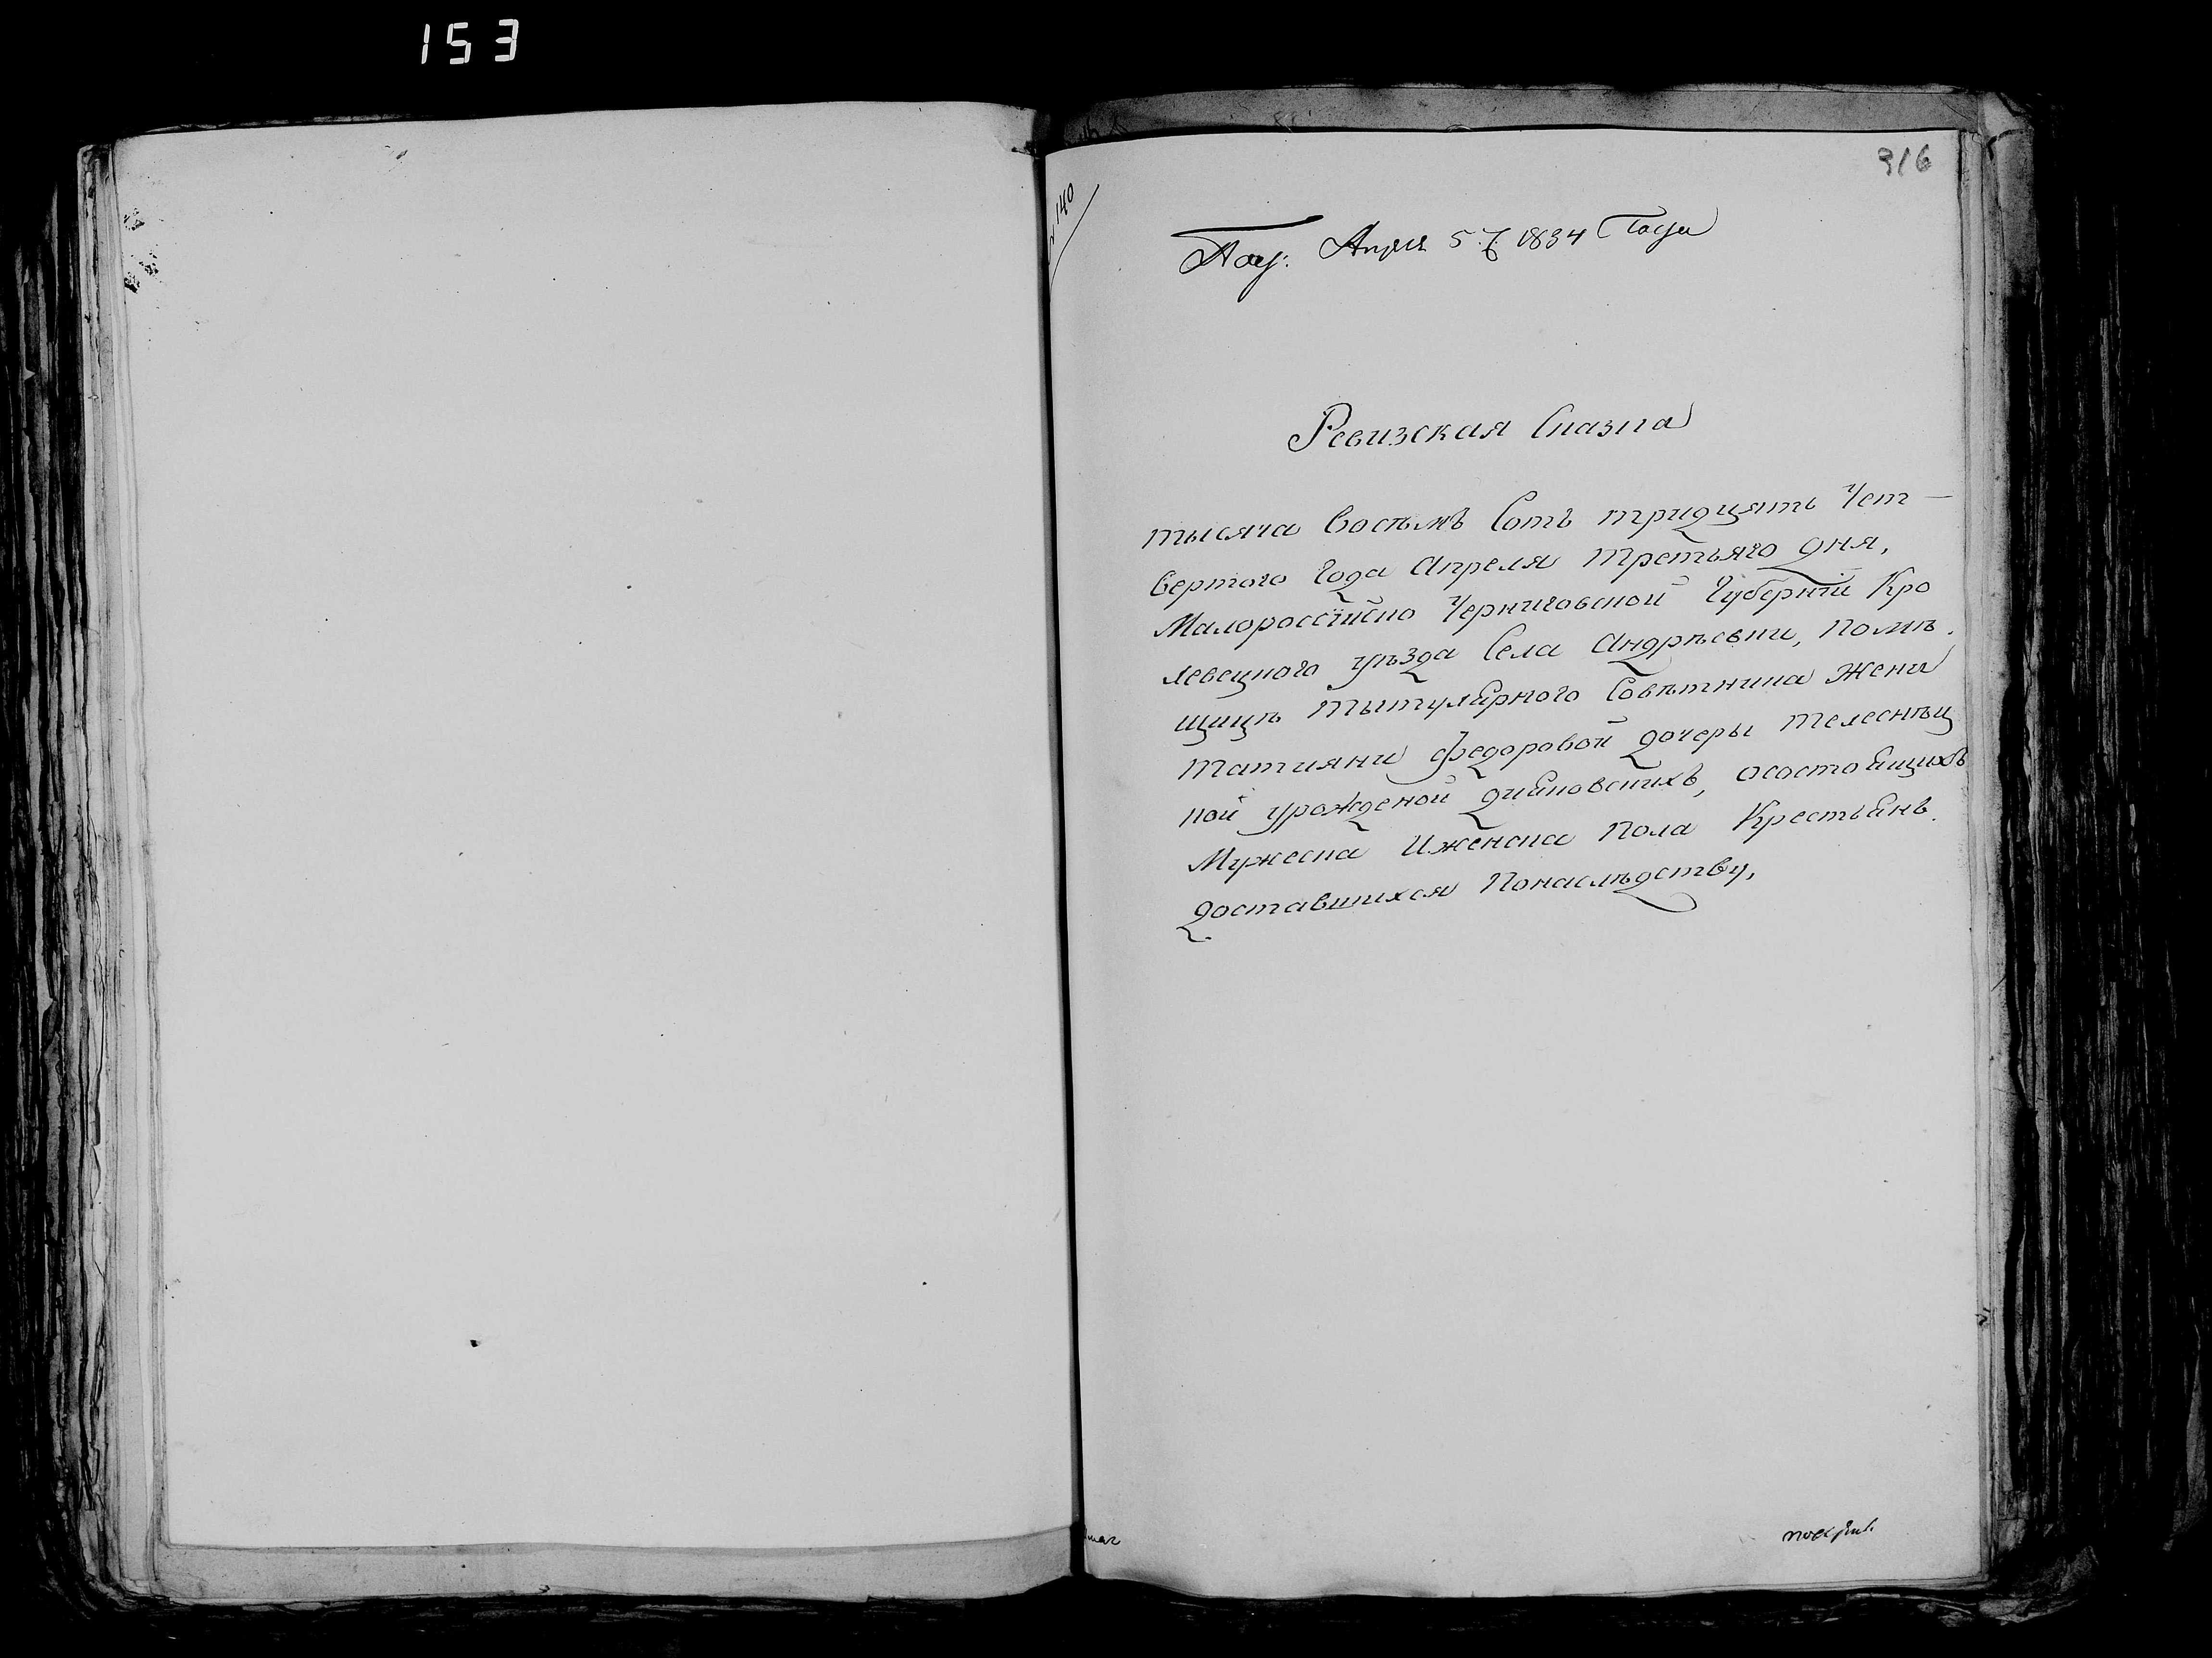 153
316
140
Апреля 5. 1834 Года
Ревизская Сказка
тысяча Восѣмъ Сотъ тридцять Чет-
Вертого Года Апреля Третьяго дня,
Малороссійско Черниговской Губерніи Кро
левецкого уѣзда Села Андрѣевки, Помѣ
щицѣ Тытулярного Совѣтника Жени
Татияни Федоровой дочеры Телеснѣц
кой урожденой , осостоящихъ
Мужеска Иженска Пола Крестьянъ.
доставшихся Понаслѣдству,